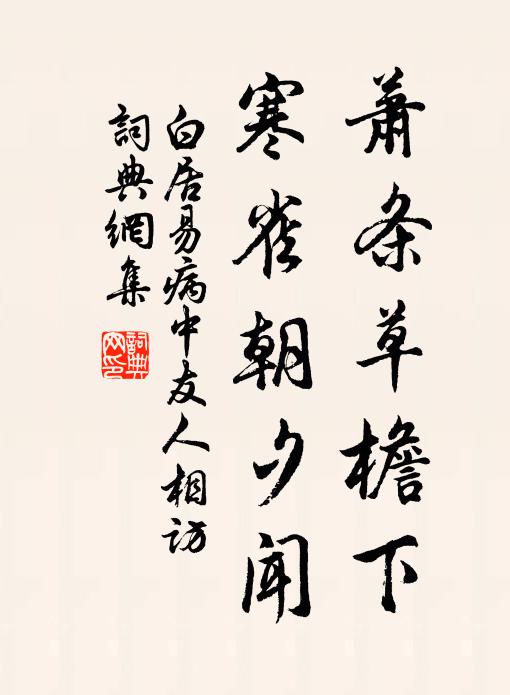 萧条草檐下
寒雀朝夕闻
白居易病中友人相访
詞典網集
詞典網印